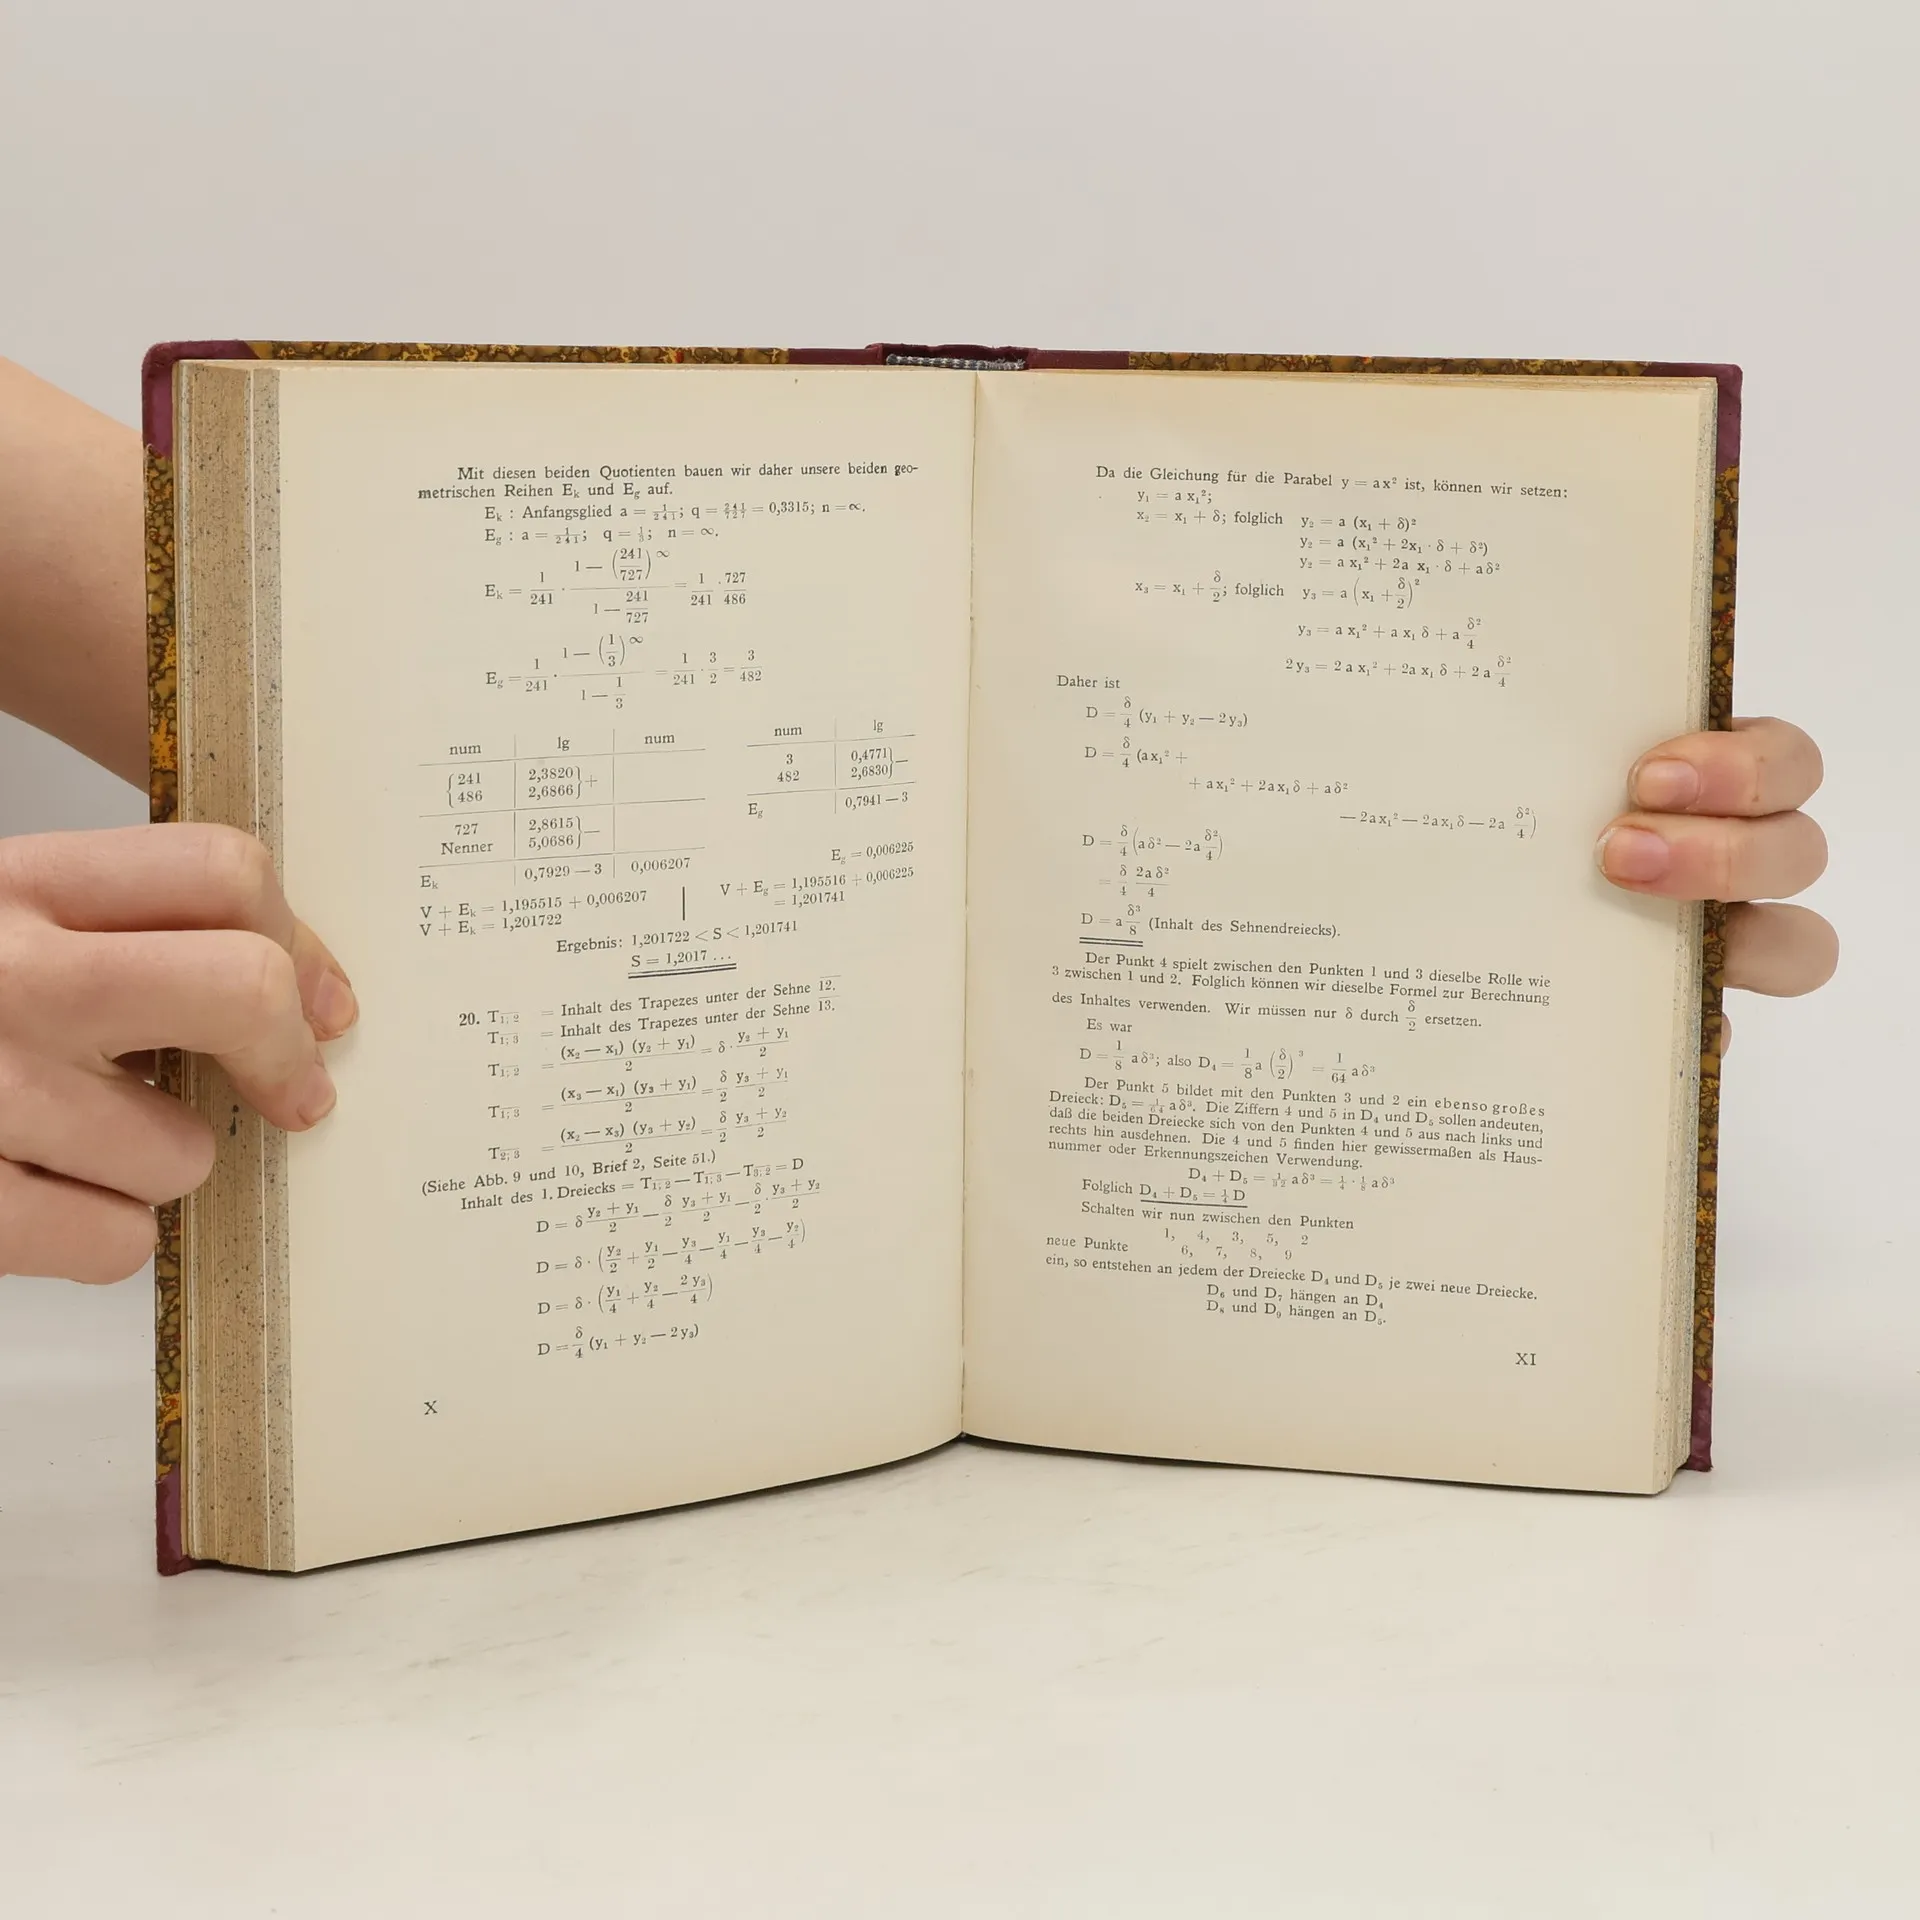 Mit diesen beiden Quotienten bauen wir daher unsere beiden geo-
metrischen Reihen Eₖ und E_g auf.
Eₖ : Anfangsglied a = 1/241; q = 241/727 = 0,3315; n = ∞.
E_g : a = 1/241; q = 1/3; n = ∞.
Eₖ = 1/241 · (1 — (241/727)^∞)/(1 — 241/727) = 1/241 · 727/486
E_g = 1/241 · (1 — (1/3)^∞)/(1 — 1/3) = 1/241 · 3/2 = 3/482
num | lg | num
{241 | 2,3820} +
{486 | 2,6866}
727 | 2,8615} —
Nenner | 5,0686}
Eₖ | 0,7929 — 3 | 0,006207
num | lg
3 | 0,4771} —
482 | 2,6830}
E_g | 0,7941 — 3
E_g = 0,006225
V + Eₖ = 1,195515 + 0,006207
V + Eₖ = 1,201722
V + E_g = 1,195516 + 0,006225
= 1,201741
Ergebnis: 1,201722 < S < 1,201741
S = 1,2017 ...
20. T1;2 = Inhalt des Trapezes unter der Sehne 12.
T1;3 = Inhalt des Trapezes unter der Sehne 13.
T1;2 = (x₂ — x₁) (y₂ + y₁)/2 = δ · (y₂ + y₁)/2
T1;3 = (x₃ — x₁) (y₃ + y₁)/2 = δ/2 (y₃ + y₁)/2
T2;3 = (x₂ — x₃) (y₃ + y₂)/2 = δ/2 (y₃ + y₂)/2
(Siehe Abb. 9 und 10, Brief 2, Seite 51.)
Inhalt des 1. Dreiecks = T1;2 — T1;3 — T3;2 = D
D = δ (y₂ + y₁)/2 — δ/2 (y₃ + y₁)/2 — δ/2 · (y₃ + y₂)/2
D = δ · (y₂/2 + y₁/2 — y₃/4 — y₁/4 — y₃/4 — y₂/4)
D = δ · (y₁/4 + y₂/4 — 2 y₃/4)
D = δ/4 (y₁ + y₂ — 2 y₃)
X
Da die Gleichung für die Parabel y = a x² ist, können wir setzen:
y₁ = a x₁²;
x₂ = x₁ + δ; folglich y₂ = a (x₁ + δ)²
y₂ = a (x₁² + 2x₁ · δ + δ²)
y₂ = a x₁² + 2a x₁ · δ + a δ²
x₃ = x₁ + δ/2; folglich y₃ = a (x₁ + δ/2)²
y₃ = a x₁² + a x₁ δ + a δ²/4
2 y₃ = 2 a x₁² + 2a x₁ δ + 2 a δ²/4
Daher ist
D = δ/4 (y₁ + y₂ — 2 y₃)
D = δ/4 (a x₁² +
+ a x₁² + 2a x₁ δ + a δ²
— 2a x₁² — 2a x₁ δ — 2a δ²/4)
D = δ/4 (a δ² — 2a δ²/4)
= δ/4 2a δ²/4
D = a δ³/8 (Inhalt des Sehnendreiecks).
Der Punkt 4 spielt zwischen den Punkten 1 und 3 dieselbe Rolle wie
3 zwischen 1 und 2. Folglich können wir dieselbe Formel zur Berechnung
des Inhaltes verwenden. Wir müssen nur δ durch δ/2 ersetzen.
Es war
D = 1/8 a δ³; also D₄ = 1/8 a (δ/2)³ = 1/64 a δ³
Der Punkt 5 bildet mit den Punkten 3 und 2 ein ebenso großes
Dreieck: D₅ = 1/64 a δ³. Die Ziffern 4 und 5 in D₄ und D₅ sollen andeuten,
daß die beiden Dreiecke sich von den Punkten 4 und 5 aus nach links und
rechts hin ausdehnen. Die 4 und 5 finden hier gewissermaßen als Haus-
nummer oder Erkennungszeichen Verwendung.
D₄ + D₅ = 1/32 a δ³ = 1/4 · 1/8 a δ³
Folglich D₄ + D₅ = 1/4 D
Schalten wir nun zwischen den Punkten
1, 4, 3, 5, 2
neue Punkte 6, 7, 8, 9
ein, so entstehen an jedem der Dreiecke D₄ und D₅ je zwei neue Dreiecke.
D₆ und D₇ hängen an D₄
D₈ und D₉ hängen an D₅.
XI